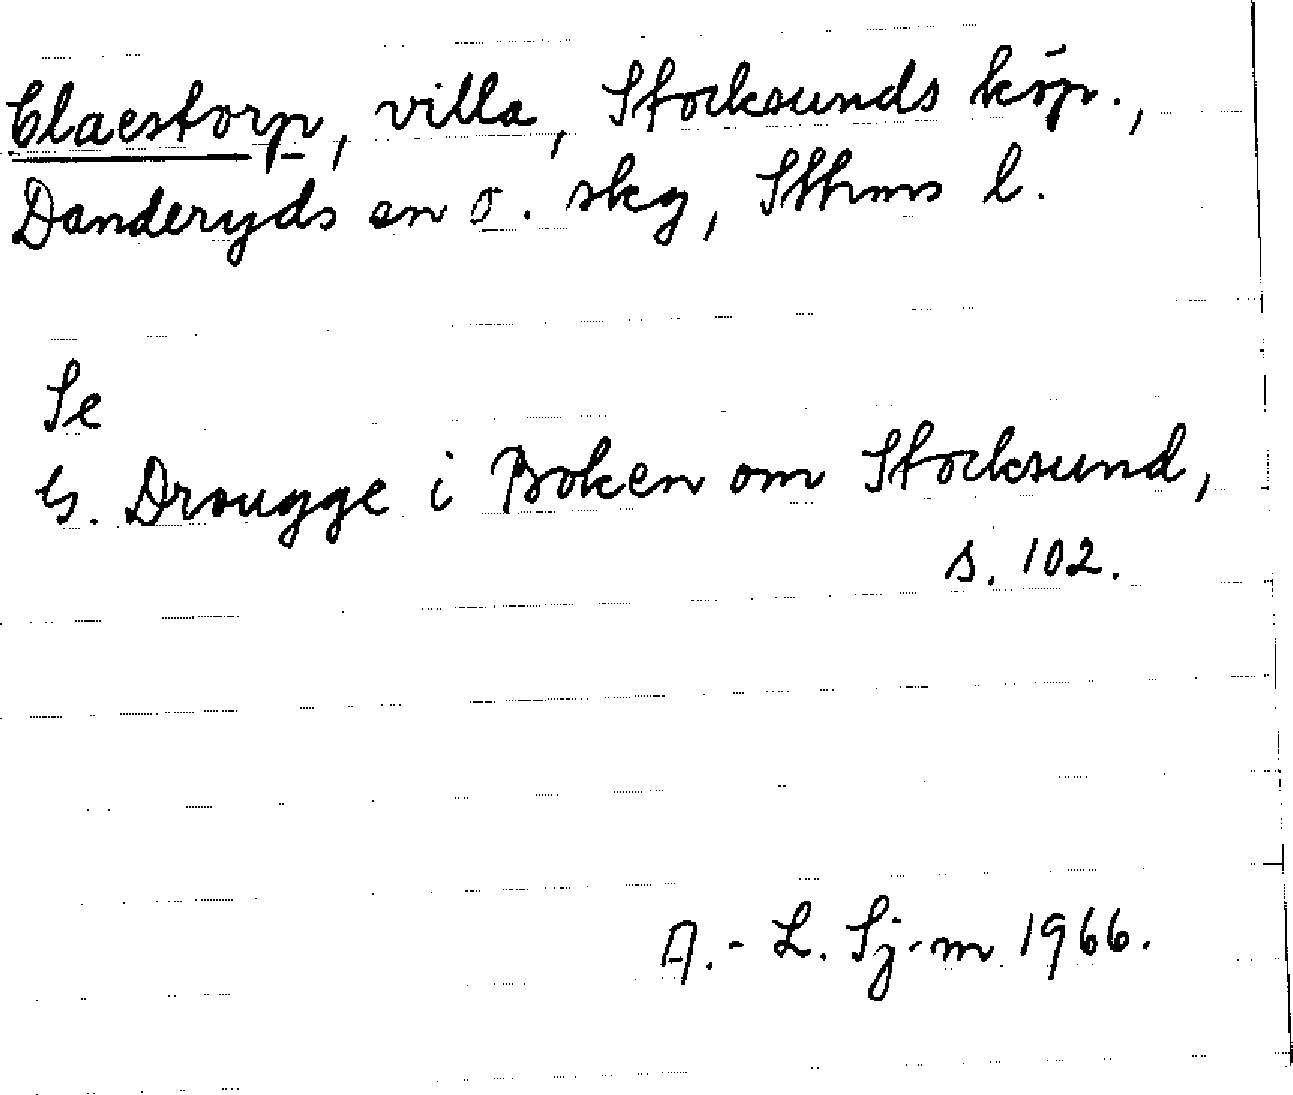 Claestorp, villa, Stocksunds köp.,
Danderyds sn o. skg, Sthms l.
Se
G. Drougge i Boken om Stocksund,
s. 102.
A.-L. Sj-m 1966.